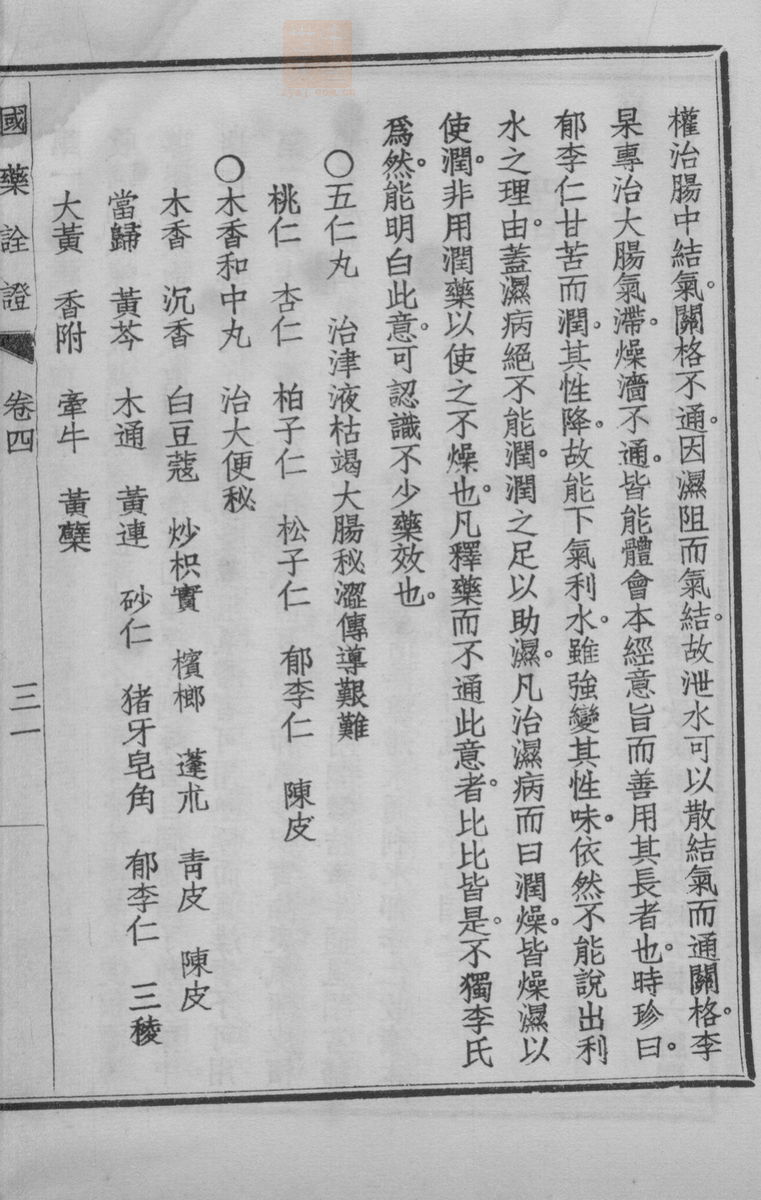 權治腸中結氣。關格不通。因濕阻而氣結。故泄水可以散結氣而通關格。李
杲專治大腸氣滯。燥濇不通。皆能體會本經意旨而善用其長者也。時珍曰。
郁李仁甘苦而潤。其性降。故能下氣利水。雖強變其性味。依然不能說出利
水之理由。蓋濕病絕不能潤。潤之足以助濕。凡治濕病而曰潤燥。皆燥濕以
使潤。非用潤藥以使之不燥也。凡釋藥而不通此意者。比比皆是。不獨李氏
爲然。能明白此意。可認識不少藥效也。
〇五仁丸 治津液枯竭大腸秘澀傳導艱難
桃仁 杏仁 柏子仁 松子仁 郁李仁 陳皮
〇木香和中丸 治大便秘
木香 沉香 白豆蔻 炒枳實 檳榔 蓬朮 靑皮 陳皮
當歸 黃芩 木通 黃連 砂仁 猪牙皂角 郁李仁 三稜
大黃 香附 牽牛 黃蘗
國藥詮證 卷四 三一